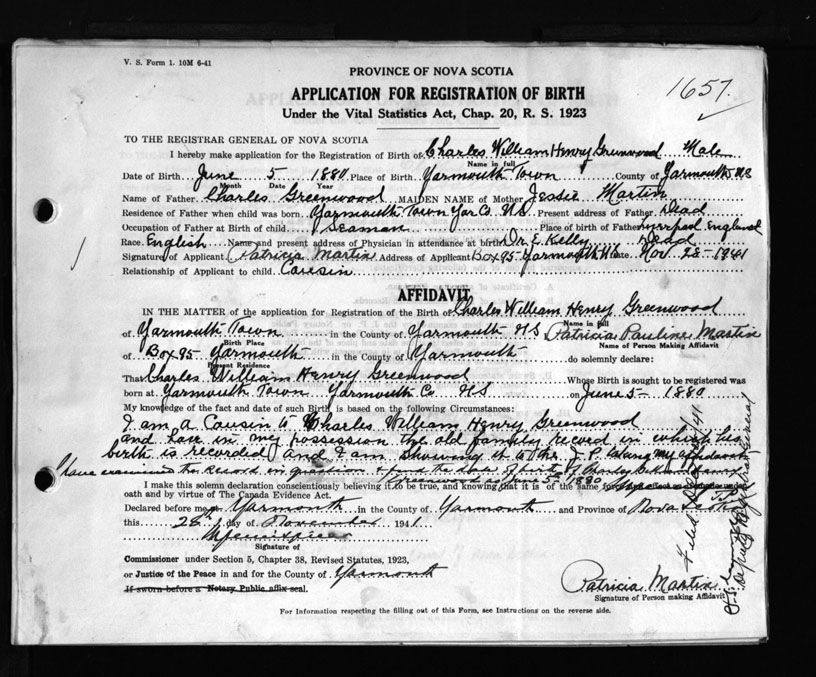 V. S. Form 1. 10M 6-41
PROVINCE OF NOVA SCOTIA
1657.
APPLICATION FOR REGISTRATION OF BIRTH
Under the Vital Statistics Act, Chap. 20, R. S. 1923
TO THE REGISTRAR GENERAL OF NOVA SCOTIA
I hereby make application for the Registration of Birth of Charles William Henry Greenwood Male
Name in full
Date of Birth June 5 1880 Place of Birth Yarmouth Town County of Yarmouth N.S
Month Day Year
Name of Father Charles Greenwood MAIDEN NAME of Mother Jessie Martin
Residence of Father when child was born Yarmouth Town Yar Co. N.S. Present address of Father Dead
Occupation of Father at Birth of child Seaman Place of Birth of Father England
Race English Name and present address of Physician in attendance at birth Dr. E. Kelly Dead
Signature of Applicant Patricia Martin Address of Applicant Box 95 Yarmouth N.S. Date Nov. 28-1941
Relationship of Applicant to child Cousin
AFFIDAVIT
IN THE MATTER of the application for Registration of the Birth of Charles William Henry Greenwood
Name in full
of Yarmouth Town in the County of Yarmouth N.S. Patricia Pauline Martin
Birth Place Name of Person Making Affidavit
of Box 95 Yarmouth in the County of Yarmouth do solemnly declare:
Present Residence
That Charles William Henry Greenwood Whose Birth is sought to be registered was
born at Yarmouth Town Yarmouth Co. N.S on June 5- 1880
My knowledge of the fact and date of such Birth is based on the following Circumstances:
I am a Cousin to Charles William Henry Greenwood
and have in my possession the old family record in which his
birth is recorded and I am showing it to the J. P. taking my affidavit
I have examined the record in question & find the date of birth of Charles William Henry
Greenwood as June 5th 1880
I make this solemn declaration conscientiously believing it to be true, and knowing that it is of the same force and effect as if made under
oath and by virtue of The Canada Evidence Act.
Declared before me at Yarmouth in the County of Yarmouth and Province of Nova Scotia
this 28th day of November 1941
Signature of
Commissioner under Section 5, Chapter 38, Revised Statutes, 1923,
or Justice of the Peace in and for the County of Yarmouth
If sworn before a Notary Public affix seal.
Patricia Martin
Signature of Person making Affidavit
For Information respecting the filling out of this Form, see Instructions on the reverse side.
Filed
Deputy Registrar General